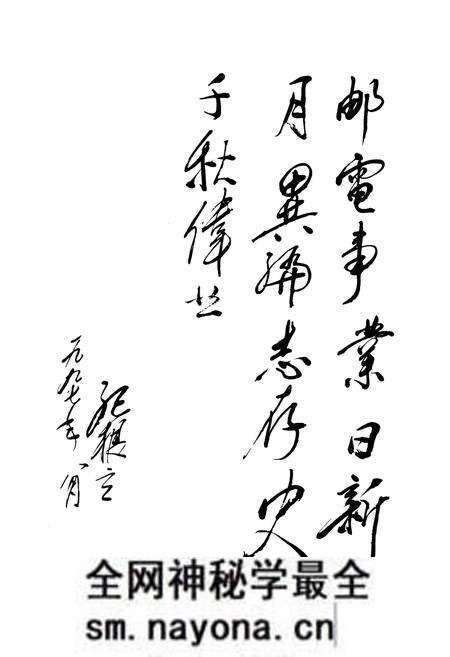 邮電事業日新
月異編志存史
千秋偉业
一九九七年八月
全网神秘学最全
sm.nayona.cn